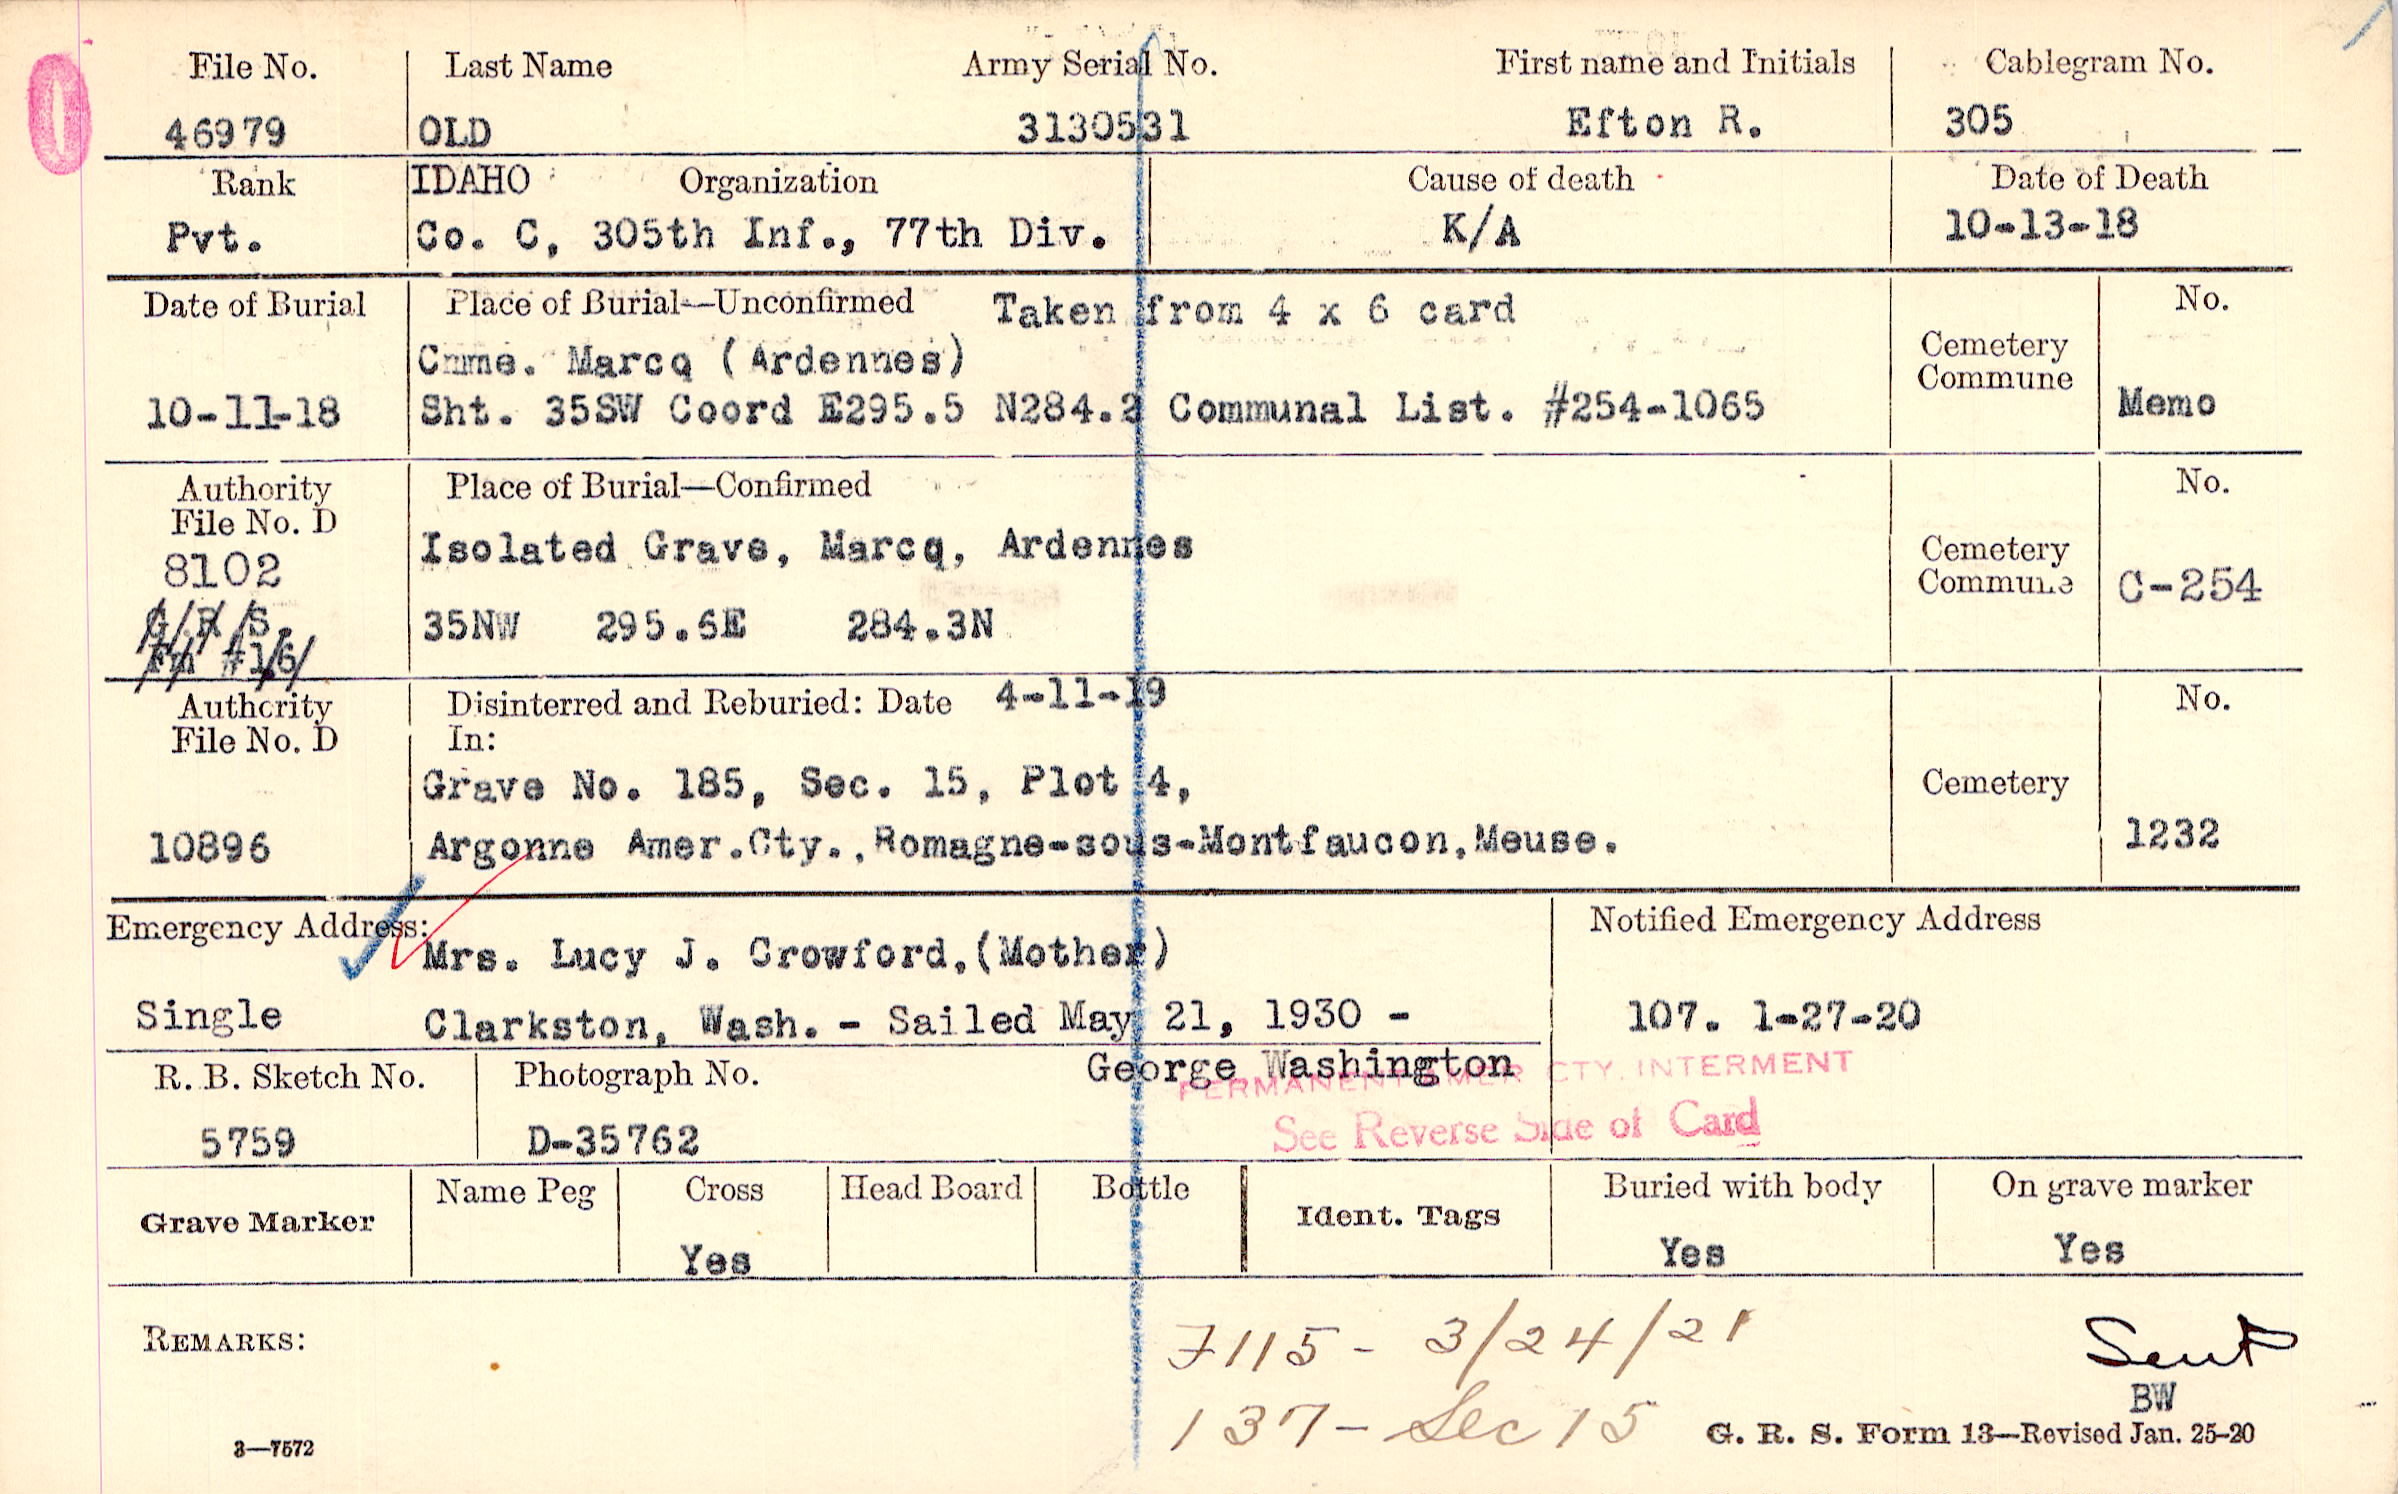 File No. Last Name Army Serial No. First name and Initials Cablegram No.
46979 OLD 3130531 Efton R. 305
Rank IDAHO Organization Cause of death Date of Death
Pvt. Co. C, 305th Inf., 77th Div. K/A 10-13-18
Date of Burial Place of Burial—Unconfirmed Taken from 4 x 6 card No.
Cmme. Marcq (Ardennes) Cemetery
Commune
10-11-18 Sht. 35SW Coord E295.5 N284.2 Communal List. #254-1065 Memo
Authority Place of Burial—Confirmed No.
File No. D
Isolated Grave, Marcq, Ardennes Cemetery
8102 Commune C-254
G.R.S. 35NW 295.6E 284.3N
Fm #16
Authority Disinterred and Reburied: Date 4-11-19 No.
File No. D In:
Grave No. 185, Sec. 15, Plot 4, Cemetery
10896 Argonne Amer.Cty.,Romagne-sous-Montfaucon,Meuse. 1232
Emergency Address: Notified Emergency Address
Mrs. Lucy J. Crowford,(Mother)
Single Clarkston, Wash. - Sailed May 21, 1930 - 107. 1-27-20
George Washington
PERMANENT AMER CTY. INTERMENT
R. B. Sketch No. Photograph No.
See Reverse Side of Card
5759 D-35762
Grave Marker Name Peg Cross Head Board Bottle Ident. Tags Buried with body On grave marker
Yes Yes Yes
REMARKS: 7115 - 3/24/21 Sent
BW
137 - Sec 15
3—7572 G. R. S. Form 13—Revised Jan. 25-20